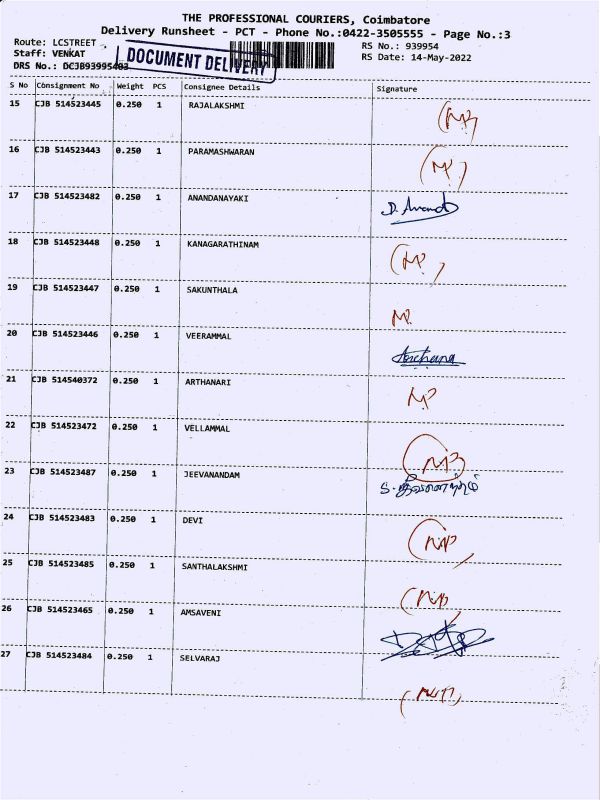 THE PROFESSIONAL COURIERS, Coimbatore
Delivery Runsheet - PCT - Phone No.:0422-3505555 - Page No.:3
Route: LCSTREET
RS No.: 939954
Staff: VENKAT
RS Date: 14-May-2022
DOCUMENT DELIVERY
DRS No.: DCJB93995403
S No Consignment No Weight PCS Consignee Details Signature
15 CJB 514523445 0.250 1 RAJALAKSHMI
16 CJB 514523443 0.250 1 PARAMASHWARAN
17 CJB 514523482 0.250 1 ANANDANAYAKI
D. Anand
18 CJB 514523448 0.250 1 KANAGARATHINAM
19 CJB 514523447 0.250 1 SAKUNTHALA
20 CJB 514523446 0.250 1 VEERAMMAL
Archana
21 CJB 514540372 0.250 1 ARTHANARI
22 CJB 514523472 0.250 1 VELLAMMAL
23 CJB 514523487 0.250 1 JEEVANANDAM
24 CJB 514523483 0.250 1 DEVI
25 CJB 514523485 0.250 1 SANTHALAKSHMI
26 CJB 514523465 0.250 1 AMSAVENI
27 CJB 514523484 0.250 1 SELVARAJ